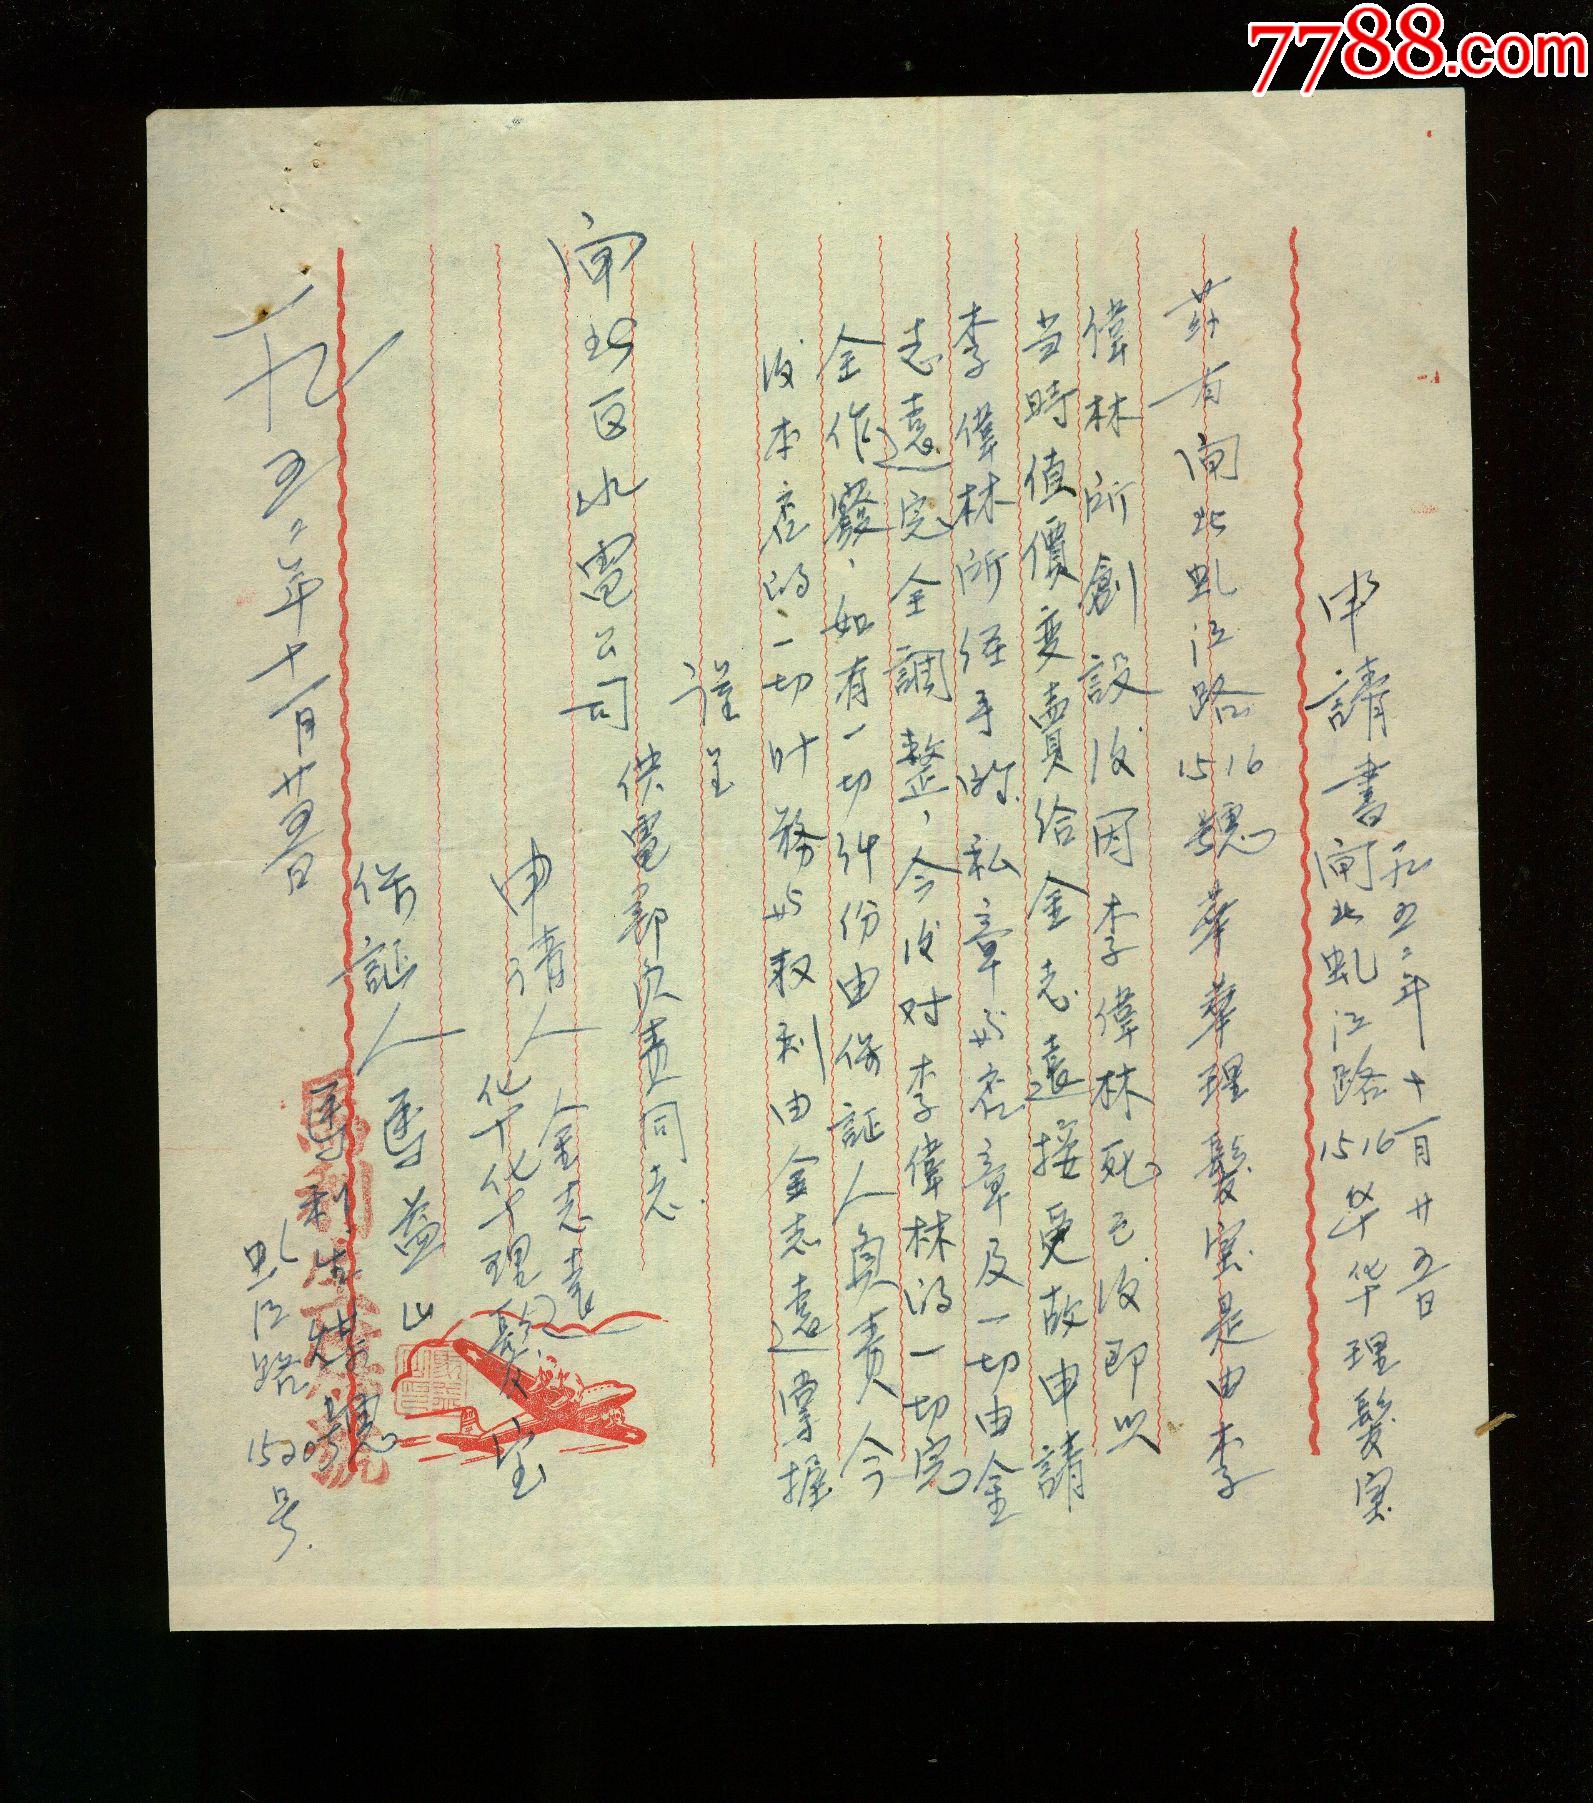 7788.com
申請書 五二年十一月廿五日
閘北虬江路1516华华理髮室
茲有閘北虬江路1516號華華理髮室是由李
偉林所創設後因李偉林死亡後即以
当時值價变賣給金志遠接受故申請
李偉林所經手的私章与店章及一切由金
志遠完全調整，今後对李偉林的一切完
全作廢，如有一切糾份由保証人負責今
後本店的一切叶務与权利由金志遠掌握
謹呈
閘北区水電公司
供電部负责同志
申请人 金志遠
华华理髮室
保証人 馬益山
馬利生 號
虬江路1520号
一九五二年十一月廿五日